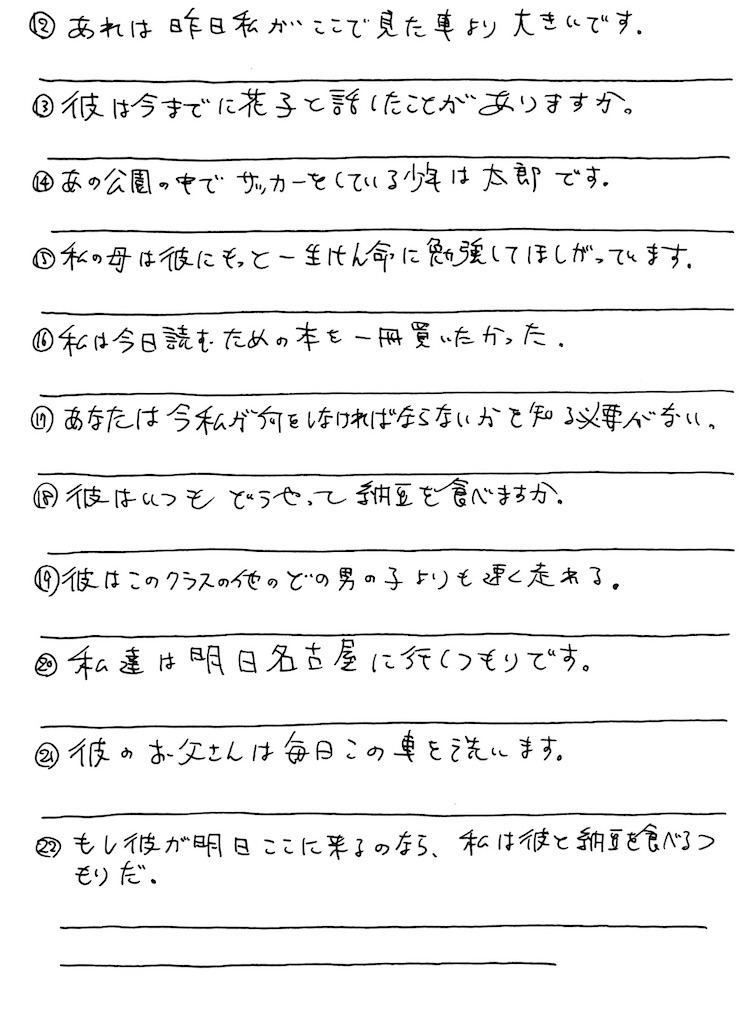 ⑫ あれは昨日私がここで見た車より大きいです.
⑬ 彼は今までに花子と話したことがありますか。
⑭ あの公園の中でサッカーをしている少年は太郎です.
⑮ 私の母は彼にもっと一生けん命に勉強してほしがっています.
⑯ 私は今日読むための本を一冊買いたかった.
⑰ あなたは今私が何をしなければならないかを知る必要がない。
⑱ 彼はいつもどうやって納豆を食べますか.
⑲ 彼はこのクラスの他のどの男の子よりも速く走れる.
⑳ 私達は明日名古屋に行くつもりです。
㉑ 彼のお父さんは毎日この車を洗います.
㉒ もし彼が明日ここに来るのなら、私は彼と納豆を食べるつ
もりだ.